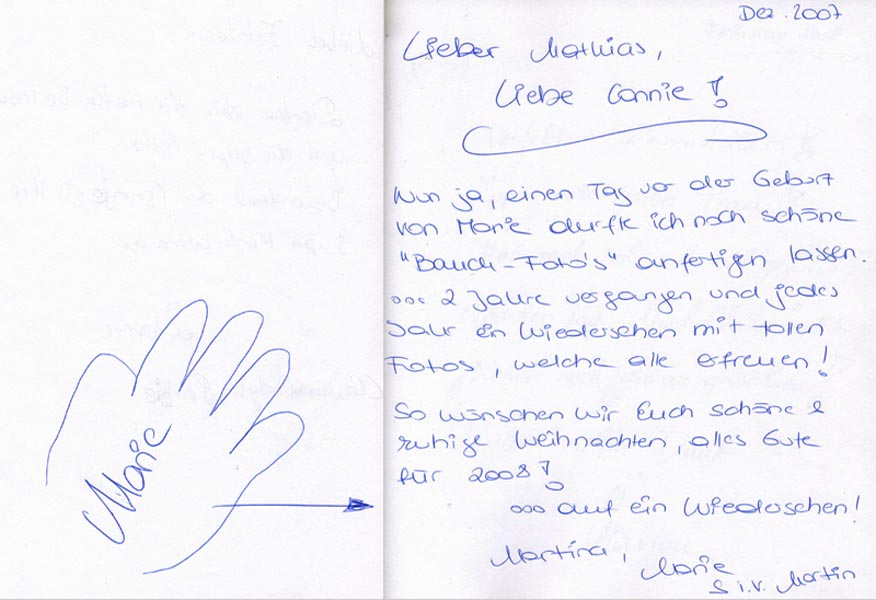 Marie
Dez. 2007
Lieber Mathias,
Liebe Connie!
Nun ja, einen Tag vor der Geburt
von Marie durfte ich noch schöne
"Bauch-Foto's" anfertigen lassen.
ooo 2 Jahre vergangen und jedes
Jahr ein Wiedersehen mit tollen
Fotos, welche alle erfreuen!
So wünschen wir Euch schöne &
ruhige Weihnachten, alles Gute
für 2008!
ooo auf ein Wiedersehen!
Martina,
Marie
& i.V. Martin